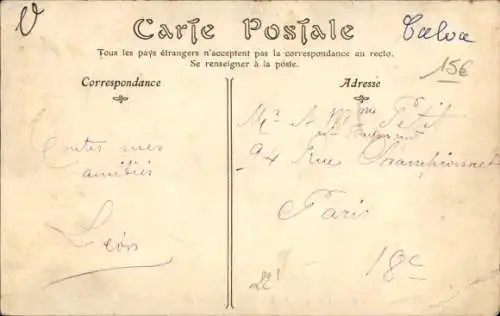 V
Carte Postale
Calva
Tous les pays étrangers n'acceptent pas la correspondance au recto.
Se renseigner à la poste.
15€
Correspondance
Adresse
Petit
Toutes mes
amitiés
94 Rue
Léon
Paris
18e